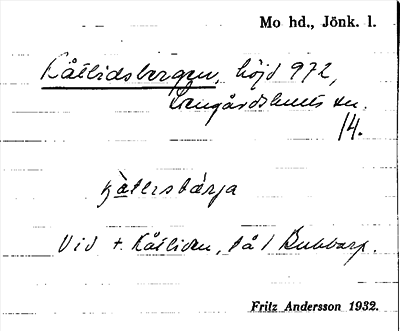 Mo hd., Jönk. l.
Kåtlidsbergen, höjd 972,
Långåsdshults sn.
14.
kàtlersbárja
Vid t. Kåtliden, på 1 Bubbarp.
Fritz Andersson 1932.